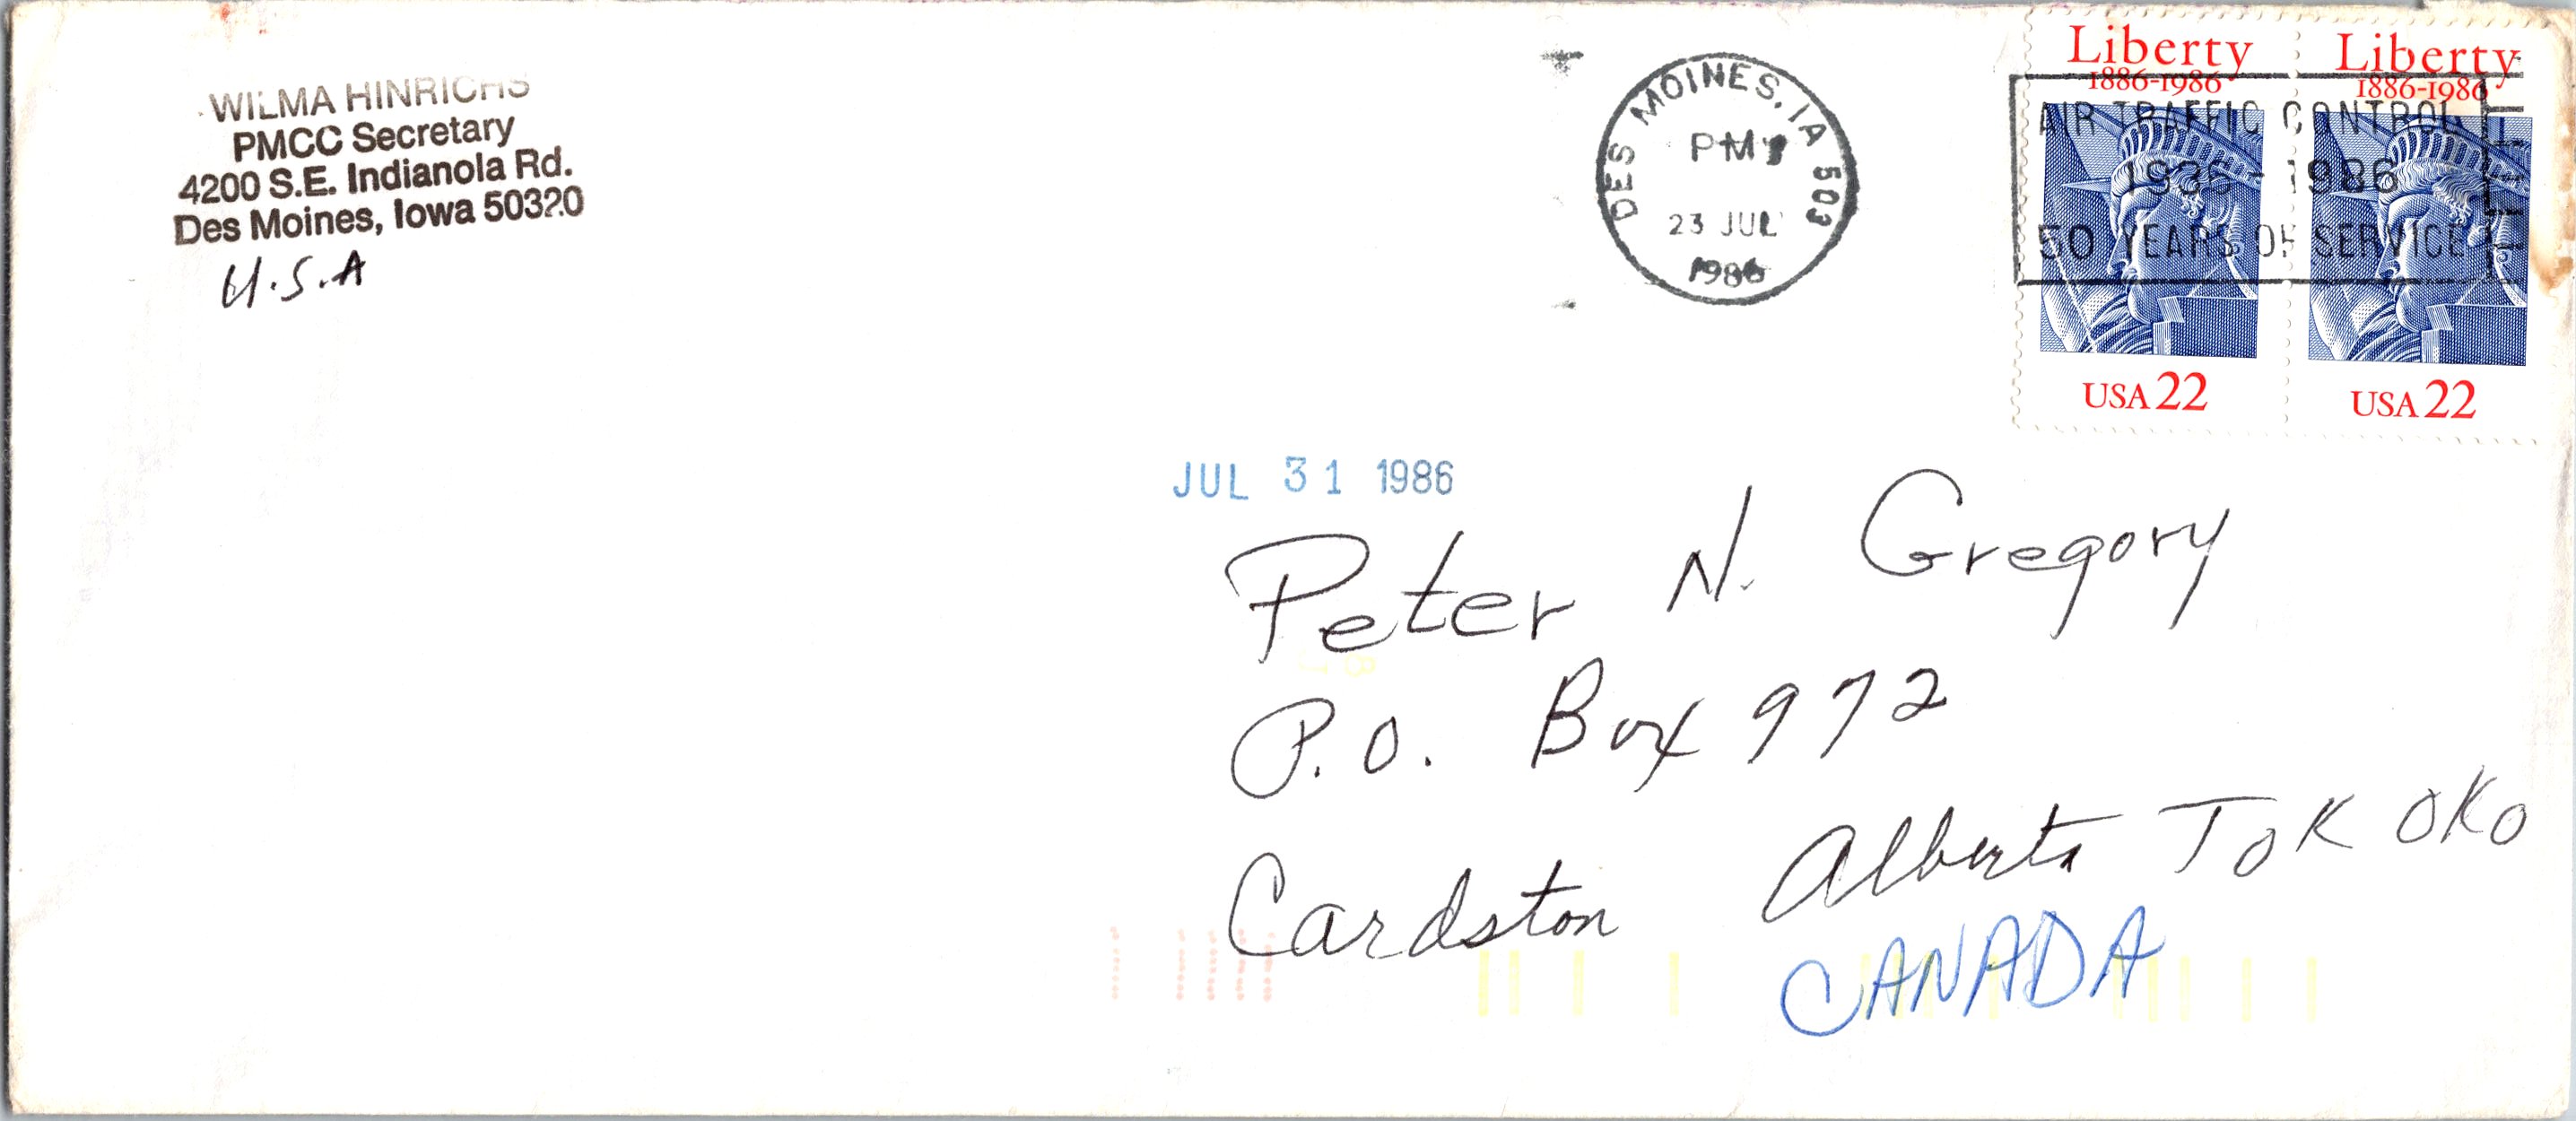 WILMA HINRICHS
PMCC Secretary
4200 S.E. Indianola Rd.
Des Moines, Iowa 50320
U.S.A
DES MOINES, IA 503
PM
23 JUL
1986
Liberty
1886-1986
USA 22
Liberty
1886-1986
USA 22
AIR TRAFFIC CONTROL
1936-1986
50 YEARS OF SERVICE
JUL 31 1986
Peter N. Gregory
P.O. Box 972
Cardston Alberta T0K 0K0
CANADA